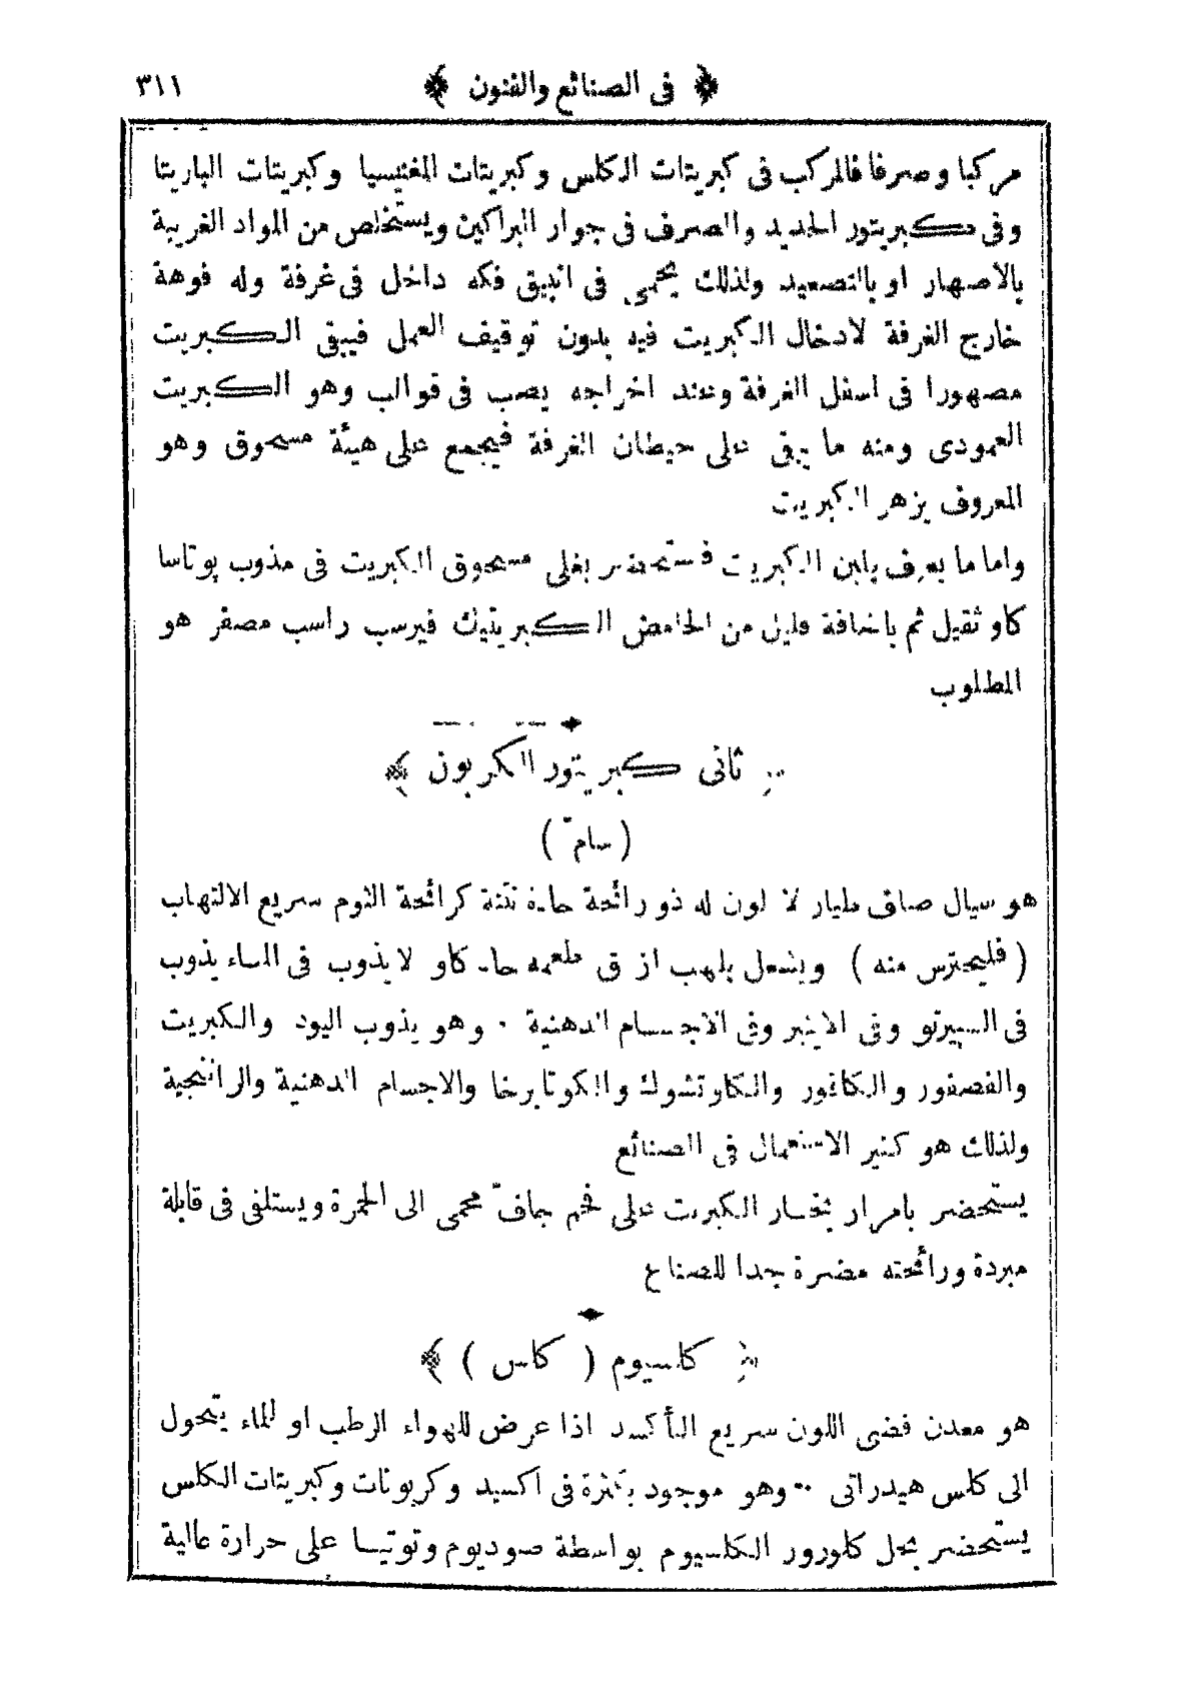 ﴿ فى الصنائع والفنون ﴾ ٣١١
مركبا وصرفا فالمركب فى كبريتات الكلس وكبريتات المغنيسيا وكبريتات الباريتا
وفى كبريتور الحديد والصرف فى جوار البراكين ويستخلص من المواد الغريبة
بالاصهار او بالتصعيد ولذلك يحمى فى انبيق فكه داخل فى غرفة وله فوهة
خارج الغرفة لادخال الكبريت فيه بدون توقيف العمل فيبقى الكبريت
مصهورا فى اسفل الغرفة وعند اخراجه يصب فى قوالب وهو الكبريت
العمودى ومنه ما يبقى على حيطان الغرفة فيجمع على هيئة مسحوق وهو
المعروف بزهر الكبريت
واما ما يعرف بلبن الكبريت فستحضر بغلى مسحوق الكبريت فى مذوب پوتاسا
كاو ثقيل ثم باضافة قليل من الحامض الكبريتيك فيرسب راسب مصفر هو
المطلوب
﴿ ثانى كبريتور الكربون ﴾
( سامّ )
هو سيال صاف طيار لا لون له ذو رائحة حادة نتنة كرائحة الثوم سريع الالتهاب
( فليحترس منه ) ويشعل بلهب ازرق طعمه حاد كاو لا يذوب فى الماء يذوب
فى السپيرتو وفى الايثير وفى الاجسام الدهنية ٠ وهو يذوب اليود والكبريت
والفصفور والكافور والكاوتشوك والكوتابرخا والاجسام الدهنية والراتنجية
ولذلك هو كثير الاستعمال فى الصنائع
يستحضر بامرار بخار الكبريت على فحم جافّ محمى الى الحمرة ويستلقى فى قابلة
مبردة ورائحته مضرة جدا للصناع
﴿ كلسيوم ( كلس ) ﴾
هو معدن فضى اللون سريع التأكسد اذا عرض للهواء الرطب او للماء يتحول
الى كلس هيدراتى ٠٠ وهو موجود بكثرة فى اكسيد وكربونات وكبريتات الكلس
يستحضر بحل كلورور الكلسيوم بواسطة صوديوم وتوتيا على حرارة عالية